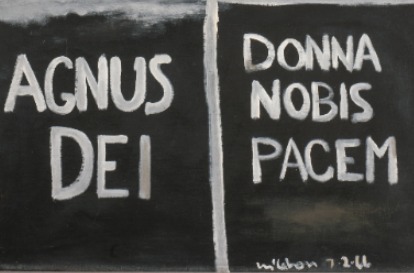 AGNUS
DEI
DONNA
NOBIS
PACEM
7-2-66